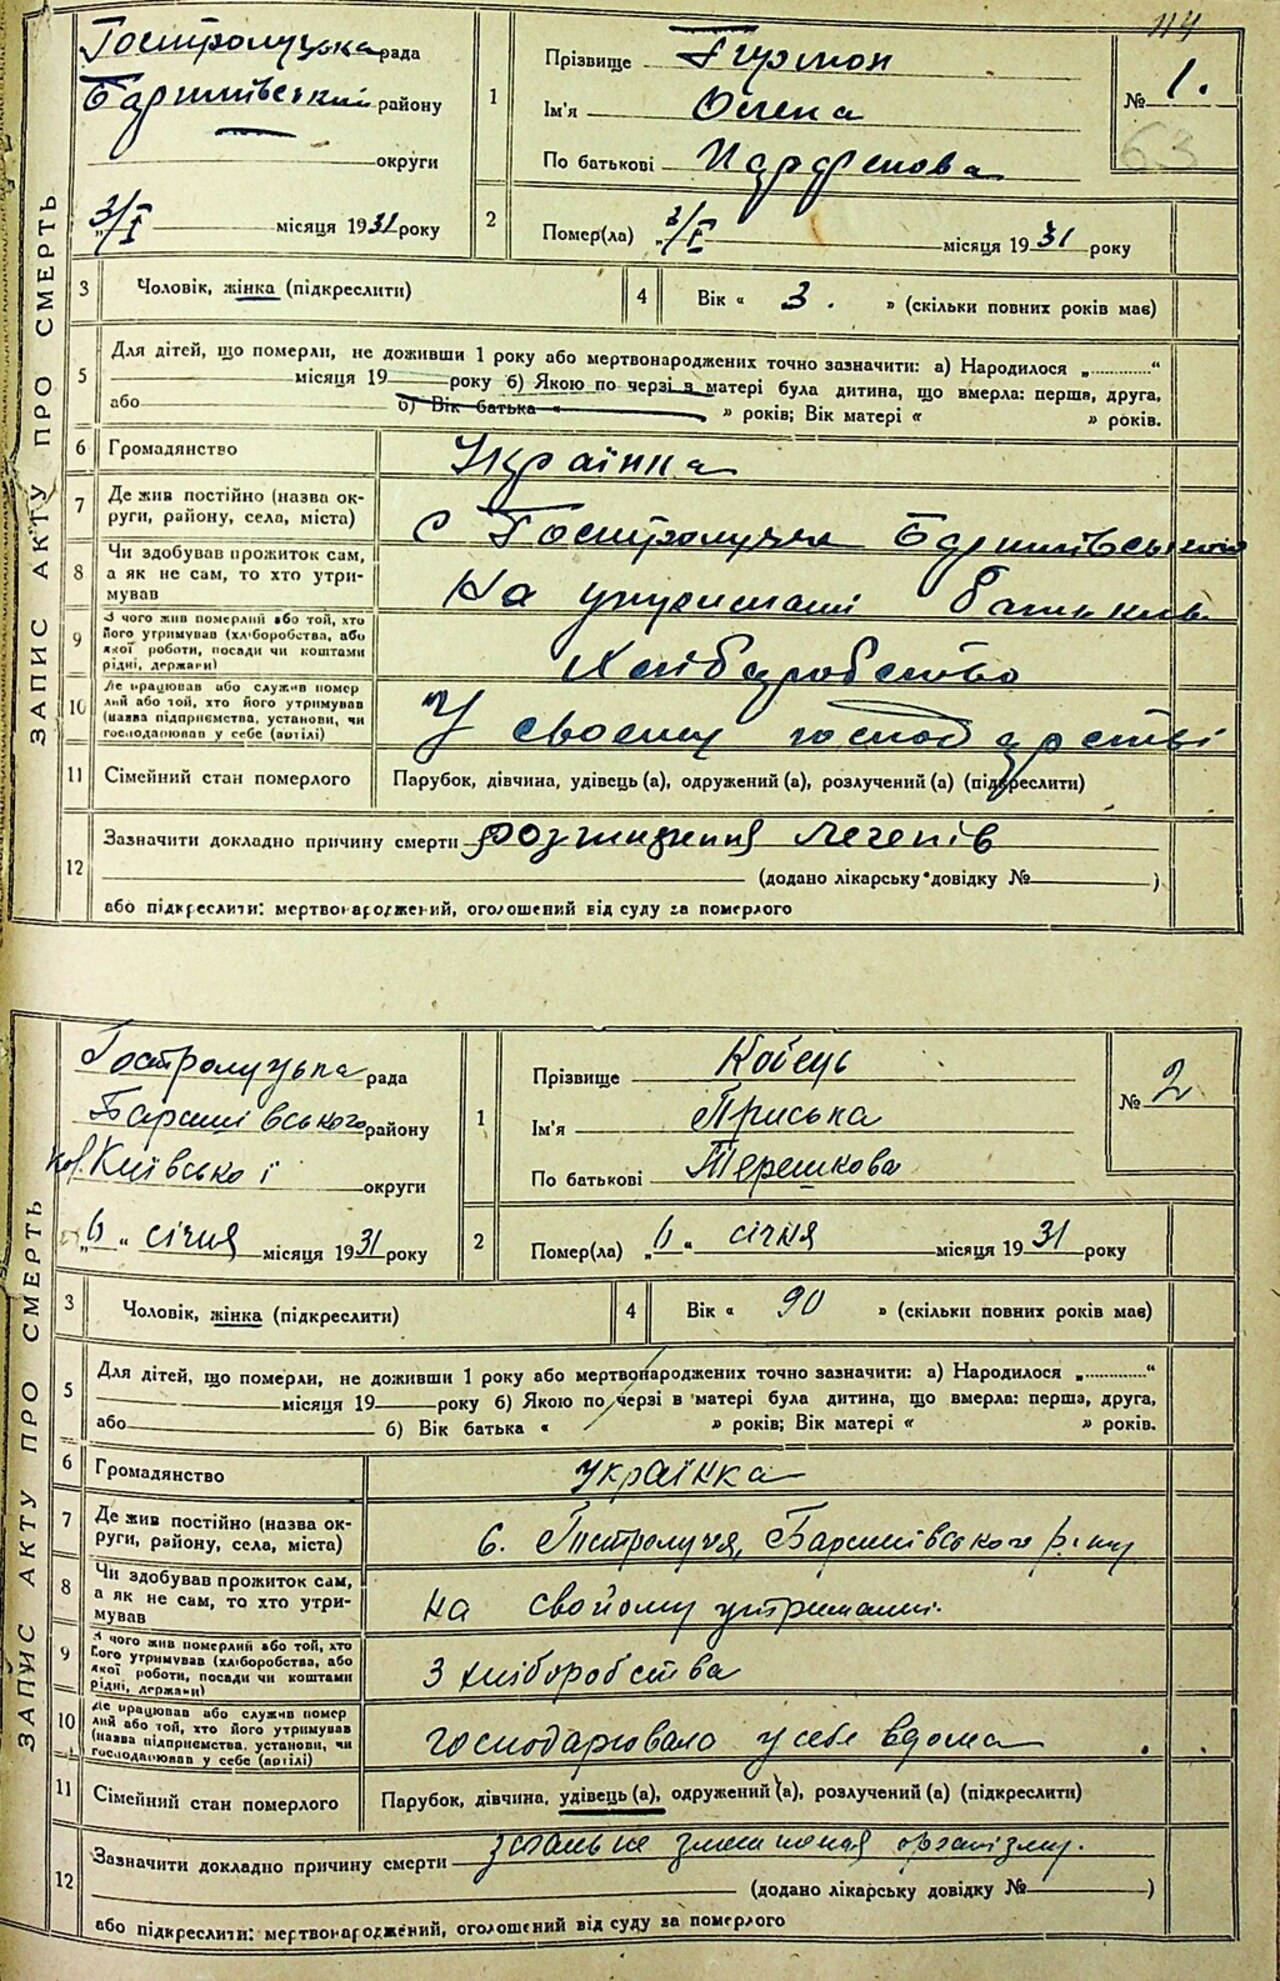 114
ЗАПИС АКТУ ПРО СМЕРТЬ
Гостролуцька рада
Баришівський району
округи
„3/I місяця 1931 року
1
Прізвище Гурмон
Ім'я Олена
По батькові Парфенова
№ 1.
63
2
Помер(ла) „3/I місяця 1931 року
3
Чоловік, жінка (підкреслити)
4
Вік « 3. » (скільки повних років має)
5
Для дітей, що померли, не доживши 1 року або мертвонароджених точно зазначити: а) Народилося „.............“
місяця 19 року б) Якою по черзі в матері була дитина, що вмерла: перша, друга,
або б) Вік батька « » років; Вік матері « » років.
6
Громадянство
Українка
7
Де жив постійно (назва ок-
руги, району, села, міста)
с Гостролуччя Баришівського
8
Чи здобував прожиток сам,
а як не сам, то хто утри-
мував
На утриманні батьків
9
З чого жив померлий або той, хто
його утримував (хліборобства, або
якої роботи, посади чи коштами
рідні, держави)
Хліборобство
10
Де працював або служив помер
лий або той, хто його утримував
(назва підприємства, установи, чи
господарював у себе (артілі)
У своєму господарстві
11
Сімейний стан померлого
Парубок, дівчина, удівець (а), одружений (а), розлучений (а) (підкреслити)
12
Зазначити докладно причину смерти легенів
(додано лікарську довідку № )
або підкреслити: мертвонароджений, оголошений від суду за померлого
ЗАПИС АКТУ ПРО СМЕРТЬ
Гостролуцька рада
Баришівського району
Київської округи
„6“ січня місяця 1931 року
1
Прізвище Кобець
Ім'я Приська
По батькові Терешкова
№ 2
2
Помер(ла) „6“ січня місяця 1931 року
3
Чоловік, жінка (підкреслити)
4
Вік « 90 » (скільки повних років має)
5
Для дітей, що померли, не доживши 1 року або мертвонароджених точно зазначити: а) Народилося „.............“
місяця 19 року б) Якою по черзі в матері була дитина, що вмерла: перша, друга,
або б) Вік батька « » років; Вік матері « » років.
6
Громадянство
Українка
7
Де жив постійно (назва ок-
руги, району, села, міста)
с. Гостролуччя, Баришівського р-ну
8
Чи здобував прожиток сам,
а як не сам, то хто утри-
мував
на свойому утриманні.
9
З чого жив померлий або той, хто
його утримував (хліборобства, або
якої роботи, посади чи коштами
рідні, держави)
З хліборобства
10
Де працював або служив помер
лий або той, хто його утримував
(назва підприємства, установи, чи
господарював у себе (артілі)
господарювала у себе вдома
11
Сімейний стан померлого
Парубок, дівчина, удівець (а), одружений (а), розлучений (а) (підкреслити)
12
Зазначити докладно причину смерти організму.
(додано лікарську довідку № )
або підкреслити: мертвонароджений, оголошений від суду за померлого